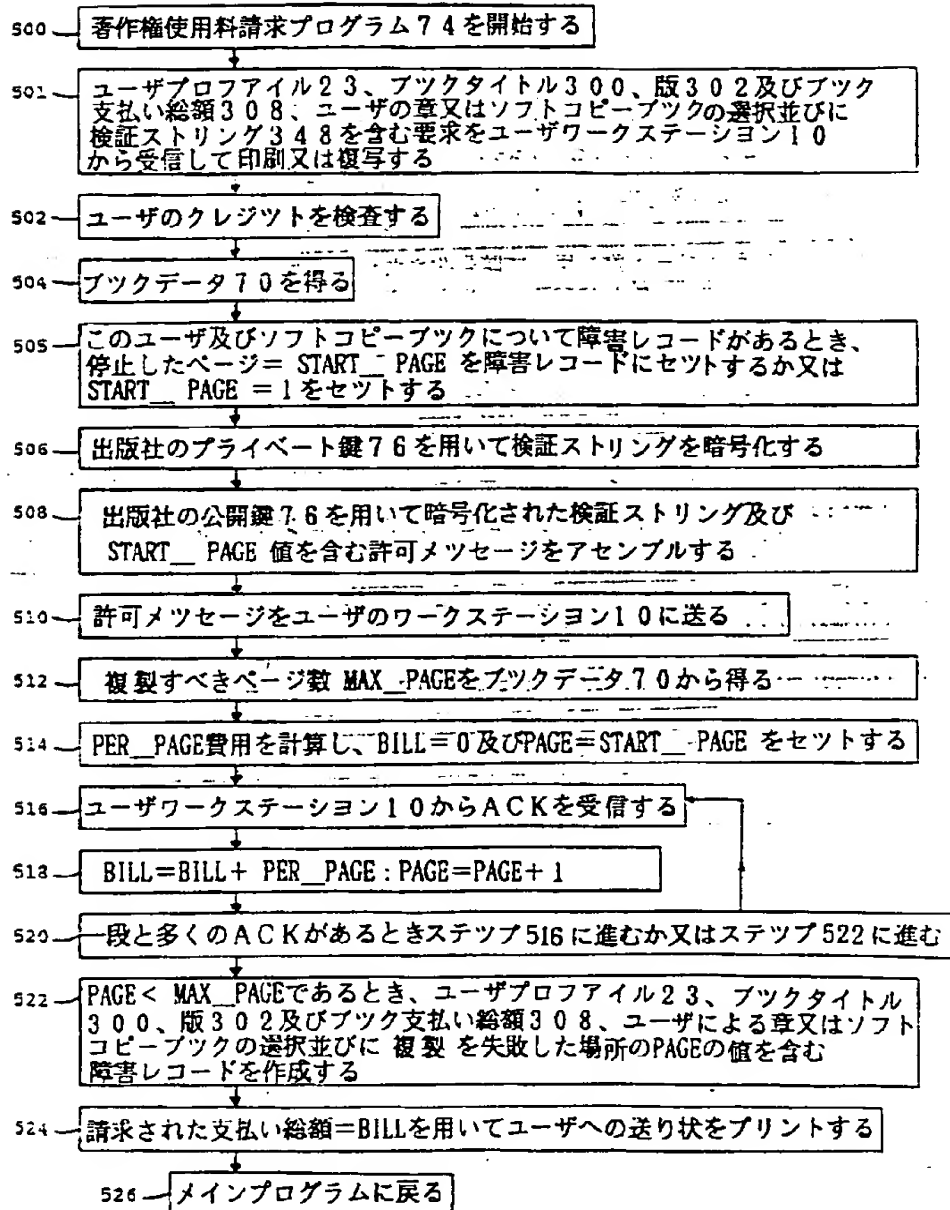 500 著作権使用料請求プログラム74を開始する
501 ユーザプロフアイル23、ブツクタイトル300、版302及びブツク
支払い総額308、ユーザの章又はソフトコピーブツクの選択並びに
検証ストリング348を含む要求をユーザワークステーシヨン10
から受信して印刷又は複写する
502 ユーザのクレジツトを検査する
504 ブツクデータ70を得る
505 このユーザ及びソフトコピーブツクについて障害レコードがあるとき、
停止したページ= START__ PAGE を障害レコードにセツトするか又は
START__ PAGE =1をセツトする
506 出版社のプライベート鍵76を用いて検証ストリングを暗号化する
508 出版社の公開鍵76を用いて暗号化された検証ストリング及び
START__ PAGE 値を含む許可メツセージをアセンブルする
510 許可メツセージをユーザのワークステーシヨン10に送る
512 複製すべきページ数 MAX__PAGEをブツクデータ70から得る
514 PER__PAGE費用を計算し、BILL=0及びPAGE=START__ PAGE をセツトする
516 ユーザワークステーシヨン10からACKを受信する
518 BILL=BILL+ PER__PAGE:PAGE=PAGE+1
520 一段と多くのACKがあるときステツプ516に進むか又はステツプ522に進む
522 PAGE< MAX__PAGEであるとき、ユーザプロフアイル23、ブツクタイトル
300、版302及びブツク支払い総額308、ユーザによる章又はソフト
コピーブツクの選択並びに 複製 を失敗した場所のPAGEの値を含む
障害レコードを作成する
524 請求された支払い総額=BILLを用いてユーザへの送り状をプリントする
526 メインプログラムに戻る